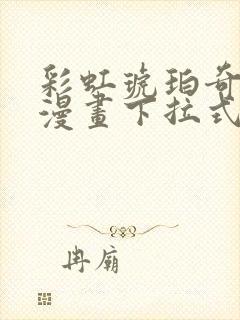 彩虹琥珀奇
漫畫下拉式
冉廟